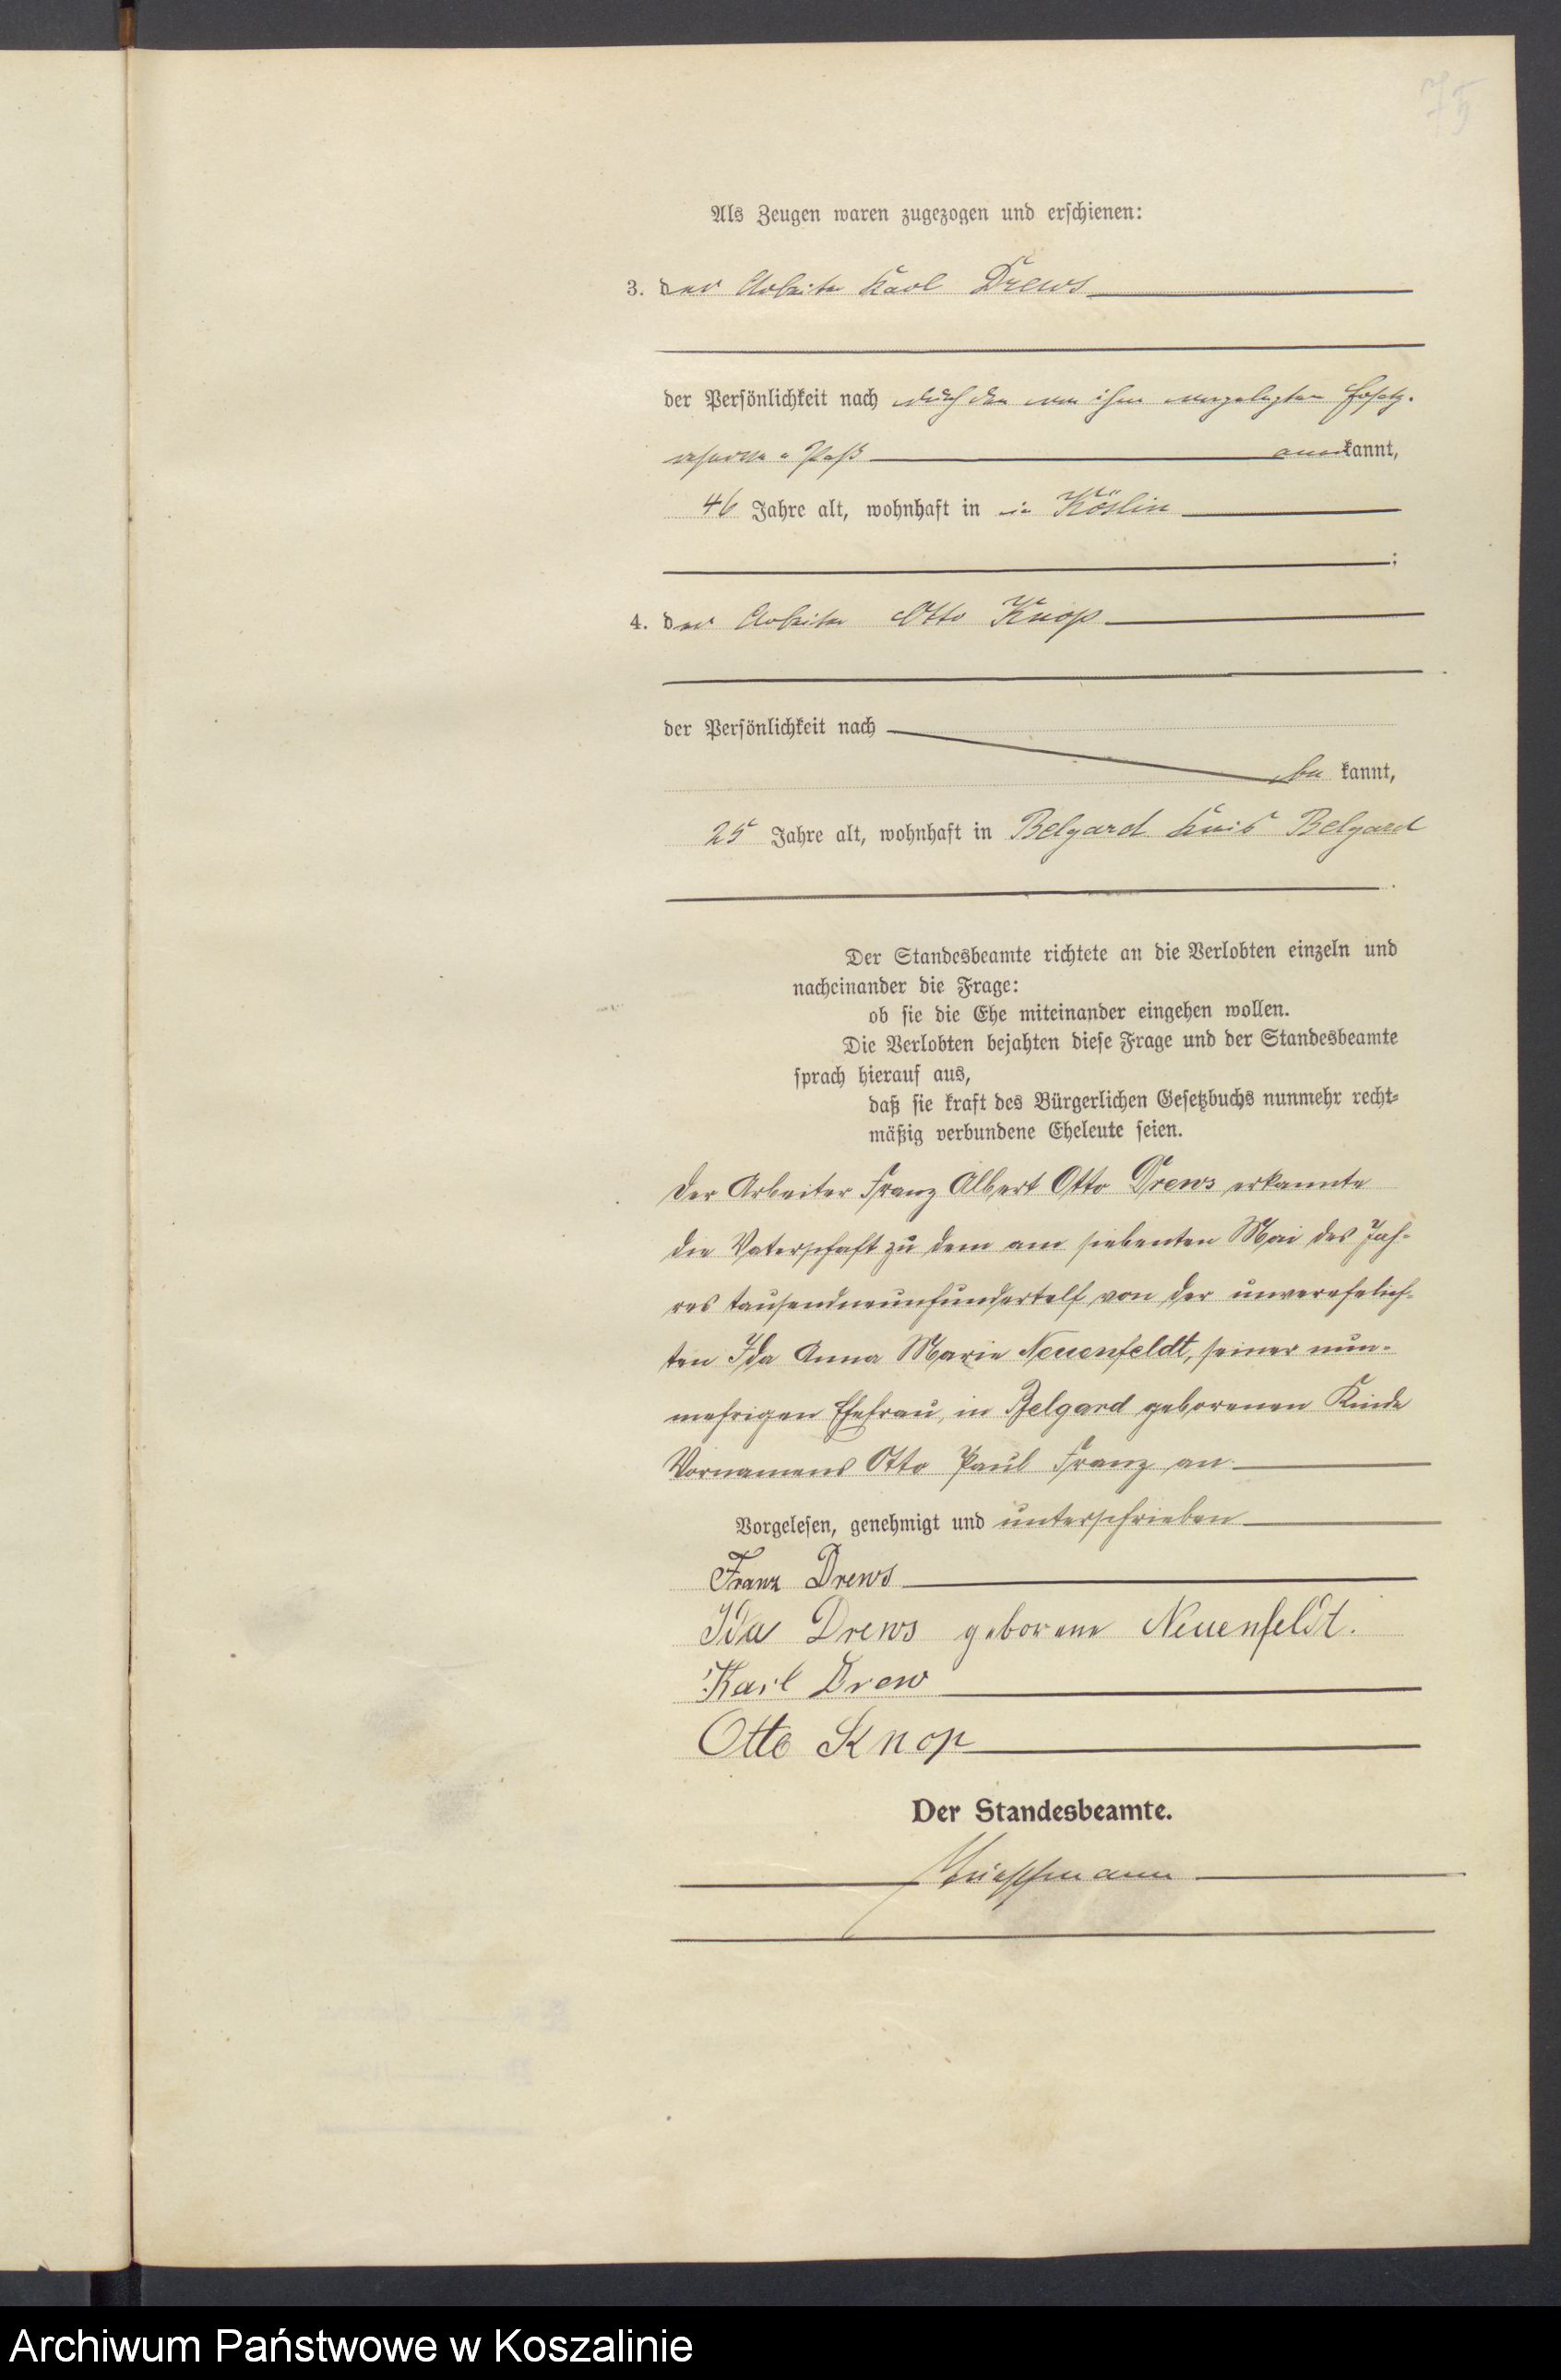 75
Als Zeugen waren zugezogen und erschienen:
3. der Arbeiter Karl Drews
der Persönlichkeit nach durch den von ihm vorgelegten Ersatz-
reserve-Paß anerkannt,
46 Jahre alt, wohnhaft in in Köslin
;
4. der Arbeiter Otto Knop
der Persönlichkeit nach
bekannt,
25 Jahre alt, wohnhaft in Belgard Kreis Belgard
.
Der Standesbeamte richtete an die Verlobten einzeln und
nacheinander die Frage:
ob sie die Ehe miteinander eingehen wollen.
Die Verlobten bejahten diese Frage und der Standesbeamte
sprach hierauf aus,
daß sie kraft des Bürgerlichen Gesetzbuchs nunmehr recht-
mäßig verbundene Eheleute seien.
Der Arbeiter Franz Albert Otto Drews erkannte
die Vaterschaft zu dem am siebenten Mai des Jah-
res tausendneunhundertelf von der unverehelich-
ten Ida Anna Marie Neuenfeldt, seiner nun-
mehrigen Ehefrau, in Belgard geborenen Kinde
Vornamens Otto Paul Franz an.
Vorgelesen, genehmigt und unterschrieben
Franz Drews
Ida Drews geborene Neuenfeldt.
Karl Drew
Otto Knop
Der Standesbeamte.
Archiwum Państwowe w Koszalinie